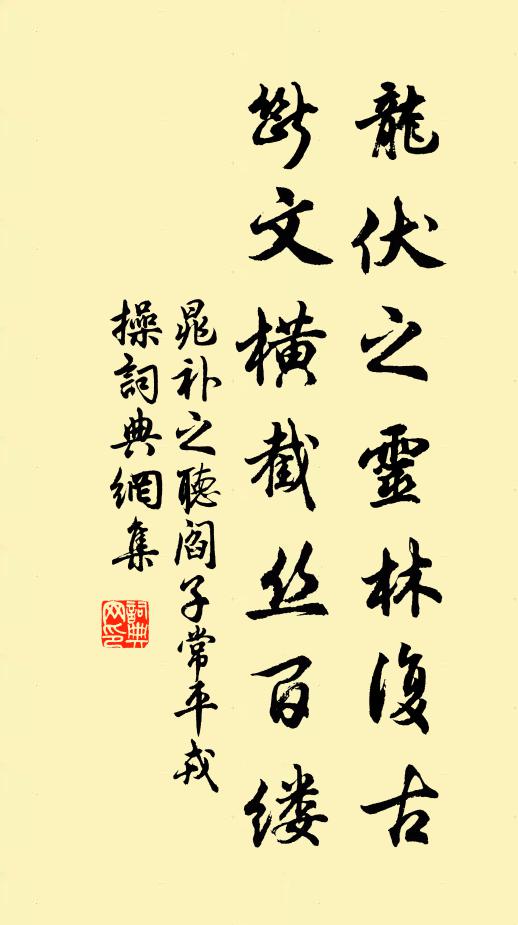 龍伏之靈林復古
斷文橫截丝百缕
晁补之聽閻子常平戎
操詞典網集
詞典网印